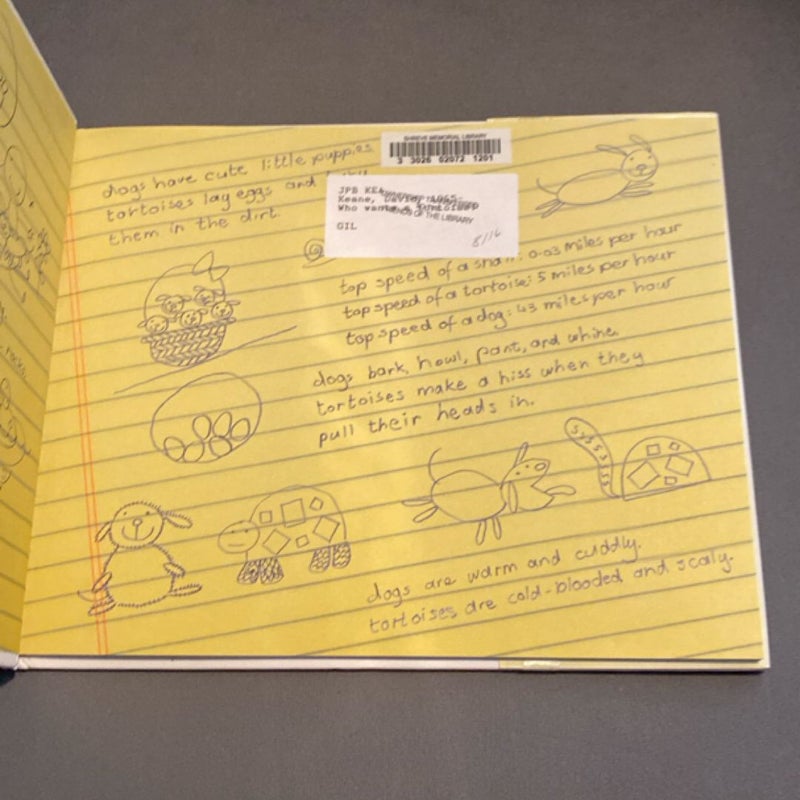 dogs have cute little puppies.
tortoises lay eggs and
them in the dirt.
SHREVE MEMORIAL LIBRARY
3 3026 02072 1201
JPB KEA
Keane, David, 1965-
Who wants a tortoise?
OF THE LIBRARY
GIL
8/16
top speed of a snail: 0.03 miles per hour
top speed of a tortoise: 5 miles per hour
top speed of a dog: 43 miles per hour
dogs bark, howl, pant, and whine.
tortoises make a hiss when they
pull their heads in.
sssssss
dogs are warm and cuddly.
tortoises are cold-blooded and scaly.